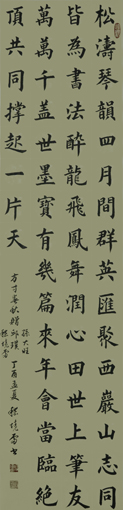 松濤琴韻四月間群英匯聚西巖山志同
皆為書法醉龍飛鳳舞潤心田世上筆友
萬萬千蓋世墨寶有幾篇來年會當臨絕
頂共同撐起一片天
丁酉孟夏